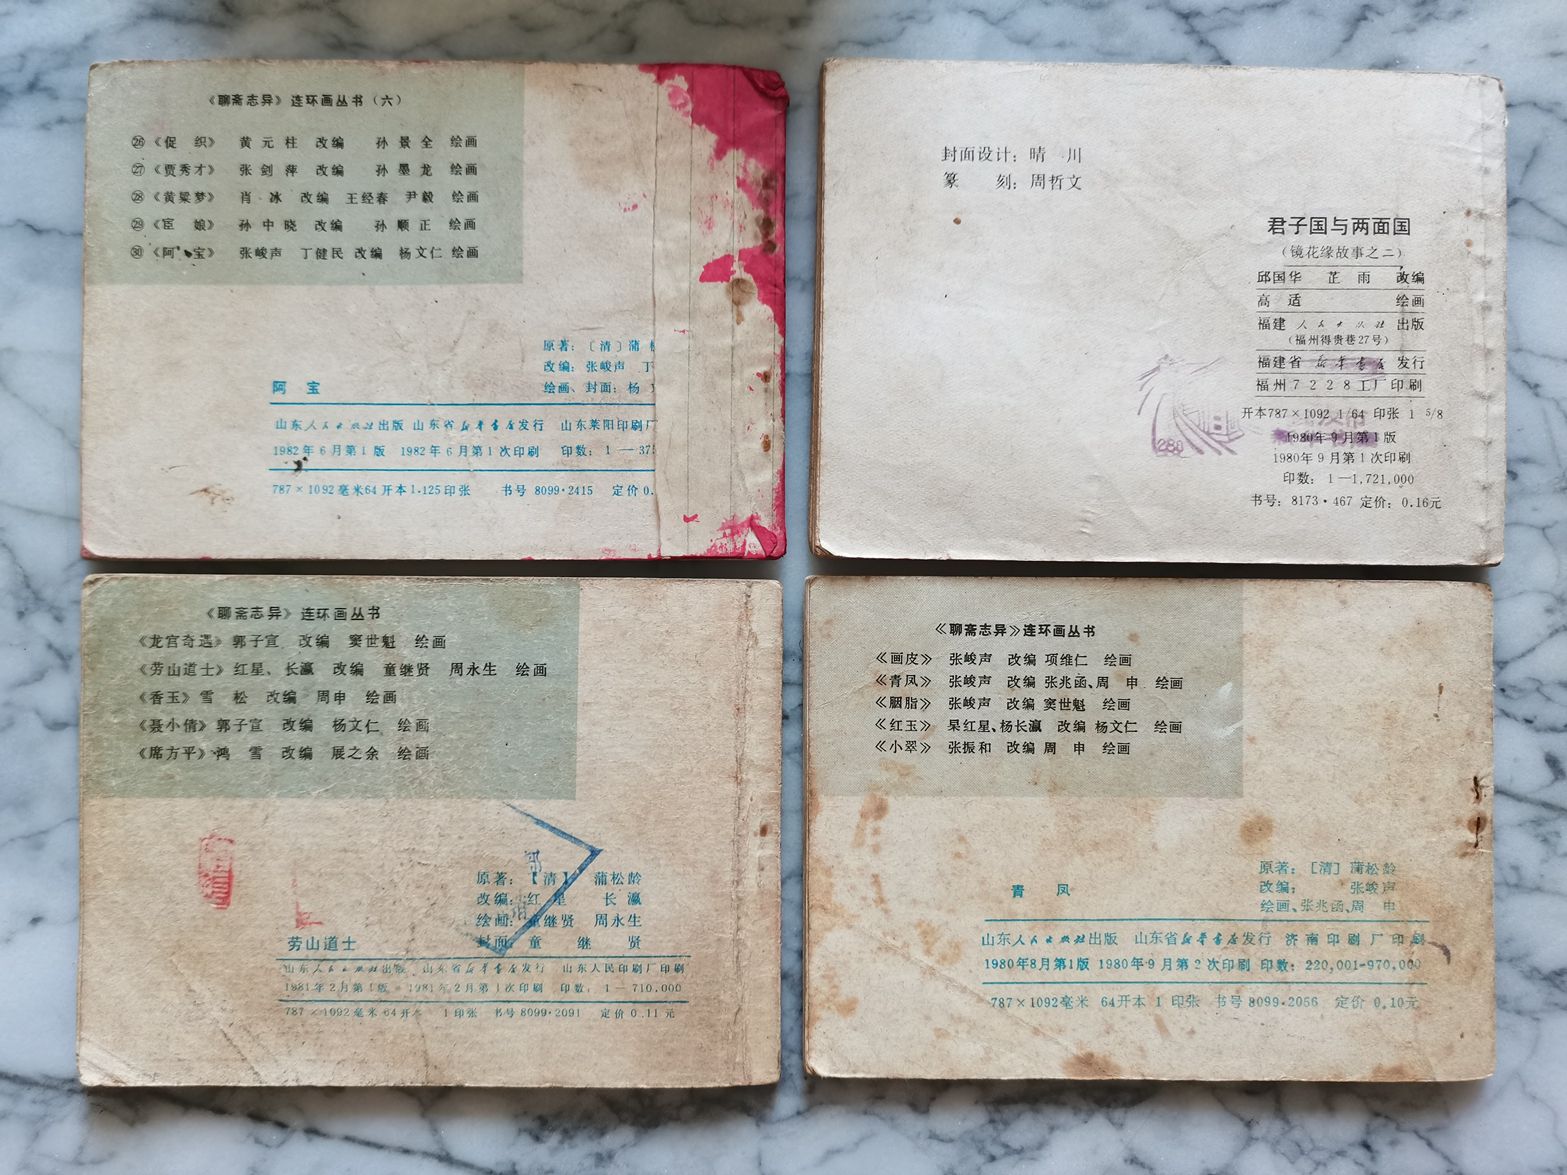 《聊斋志异》连环画丛书(六)
㉖《促 织》 黄元柱 改编 孙景全 绘画
㉗《贾秀才》 张剑萍 改编 孙墨龙 绘画
㉘《黄粱梦》 肖冰 改编 王经春 尹毅 绘画
㉙《宦 娘》 孙中晓 改编 孙顺正 绘画
㉚《阿 宝》 张峻声 丁健民 改编 杨文仁 绘画
原著:〔清〕蒲
改编:张峻声 丁
绘画、封面:杨
阿 宝
山东人民出版社出版 山东省新华书店发行 山东莱阳印刷厂
1982年6月第1版 1982年6月第1次印刷 印数:1—375
787×1092毫米64开本1.125印张 书号 8099·2415 定价 0.
封面设计:晴 川
篆 刻:周哲文
君子国与两面国
(镜花缘故事之二)
邱国华 芷雨 改编
高 适 绘画
福建人民出版社出版
(福州得贵巷27号)
福建省新华书店发行
福州7228工厂印刷
开本787×1092 1/64 印张 1 5/8
1980年9月第1版
1980年9月第1次印刷
印数:1—1,721,000
书号:8173·467 定价:0.16元
280
《聊斋志异》连环画丛书
《龙宫奇遇》郭子宣 改编 窦世魁 绘画
《劳山道士》红星、长瀛 改编 童继贤 周永生 绘画
《香玉》雪 松 改编 周申 绘画
《聂小倩》郭子宣 改编 杨文仁 绘画
《席方平》鸿 雪 改编 展之余 绘画
原著:【清】 蒲松龄
改编:红 星 长 瀛
绘画:童继贤 周永生
封面:童 继 贤
劳山道士
山东人民出版社出版 山东省新华书店发行 山东人民印刷厂印刷
1981年2月第1版 1981年2月第1次印刷 印数:1—710,000
787×1092毫米 64开本 1印张 书号8099·2091 定价 0.11元
《聊斋志异》连环画丛书
《画皮》 张峻声 改编 项维仁 绘画
《青凤》 张峻声 改编 张兆函、周 申 绘画
《胭脂》 张峻声 改编 窦世魁 绘画
《红玉》 杲红星、杨长瀛 改编 杨文仁 绘画
《小翠》 张振和 改编 周 申 绘画
原著:[清]蒲松龄
改编: 张峻声
绘画、张兆函、周 申
青 凤
山东人民出版社出版 山东省新华书店发行 济南印刷厂印刷
1980年8月第1版 1980年9月第2次印刷 印数:220,001-970,000
787×1092毫米 64开本 1 印张 书号 8099·2056 定价 0.10元